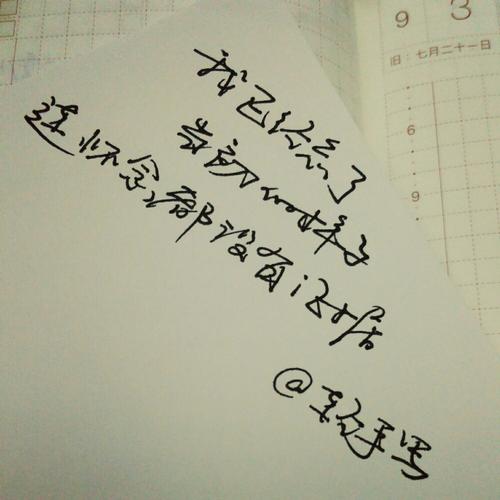 9 3
旧：七月二十一日
6
9
我已经忘了
当初的样子
连怀念都没有证据
手写